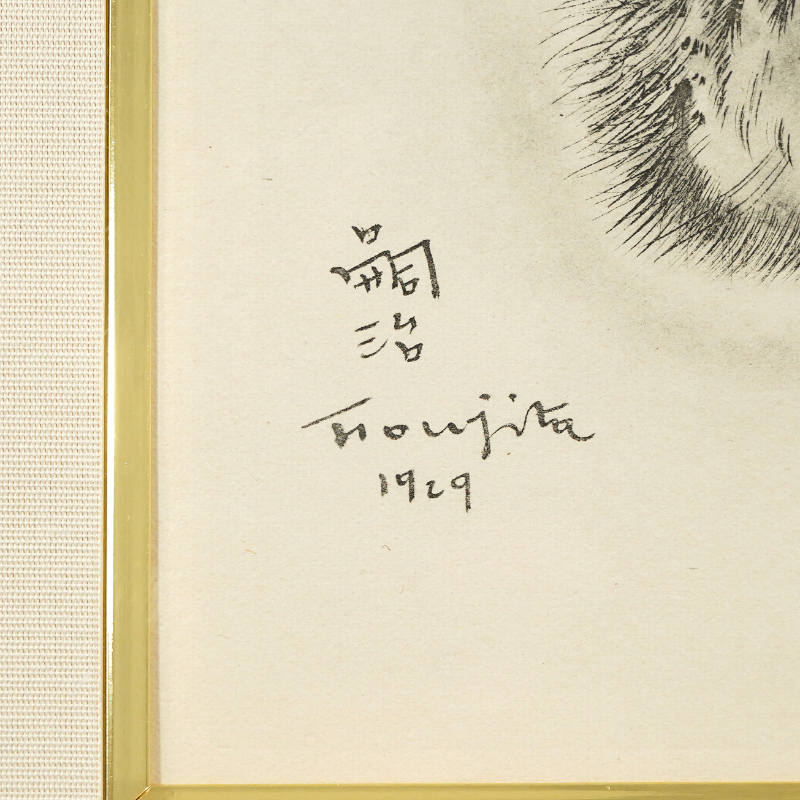 嗣
治
Foujita
1929